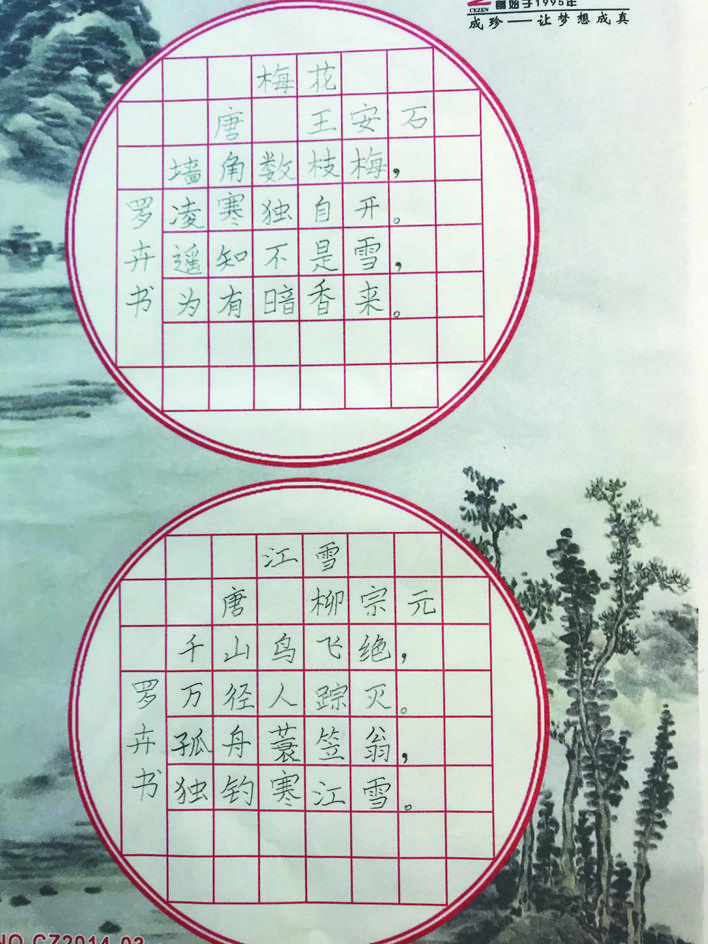 创始于1995年
CEZEN
成珍——让梦想成真
梅花
唐 王安石
墙角数枝梅，
凌寒独自开。
遥知不是雪，
为有暗香来。
罗卉书
江雪
唐 柳宗元
千山鸟飞绝，
万径人踪灭。
孤舟蓑笠翁，
独钓寒江雪。
罗卉书
NO.CZ2014-03